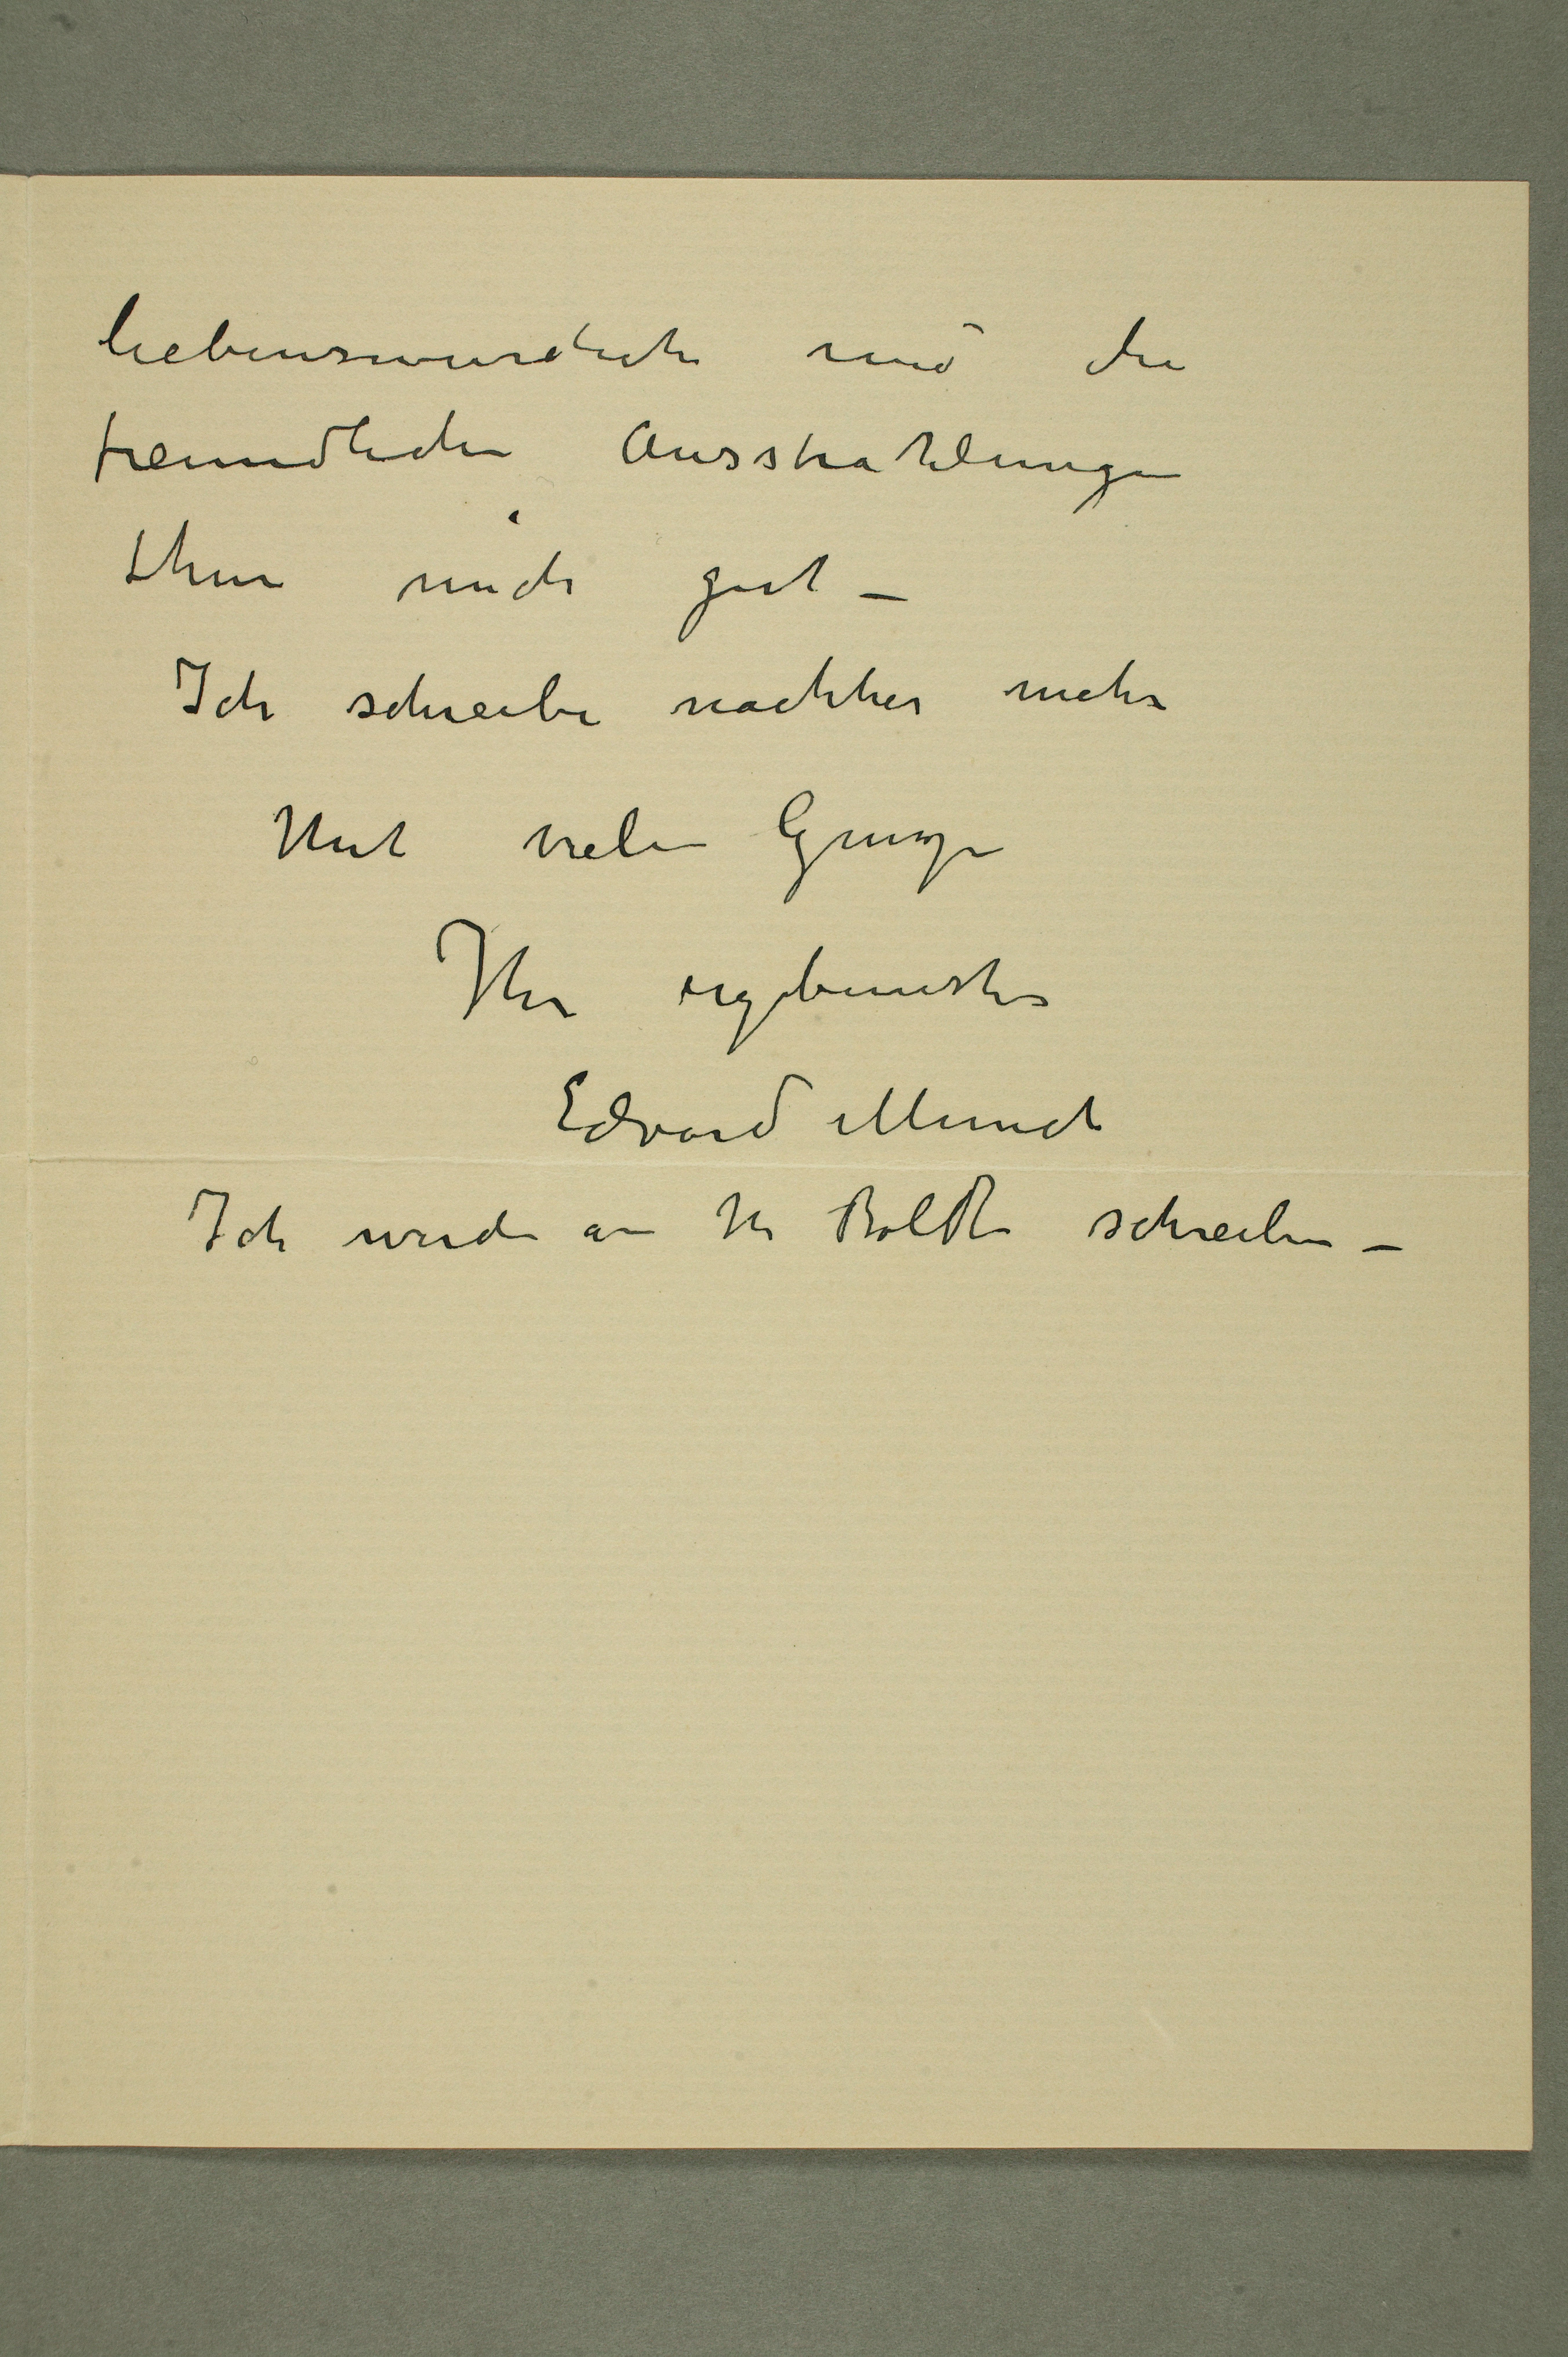 liebenswurdich und die
freundlichen Ausstrahlungen
thun mich gut –
Ich schreibe nachher mehr
Mit vielen Grüsze
Ihr ergebenster
Edvard Munch
Ich werde an Hr Boldt schreiben –